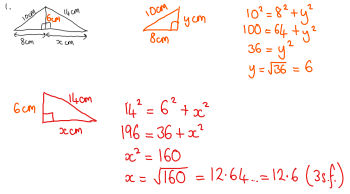 1.
10cm
6cm
14cm
8cm
x cm
10cm
ycm
8cm
10² = 8² + y²
100 = 64 + y²
36 = y²
y = √36 = 6
6cm
14cm
xcm
14² = 6² + x²
196 = 36 + x²
x² = 160
x = √160 = 12.64... = 12.6 (3s.f.)